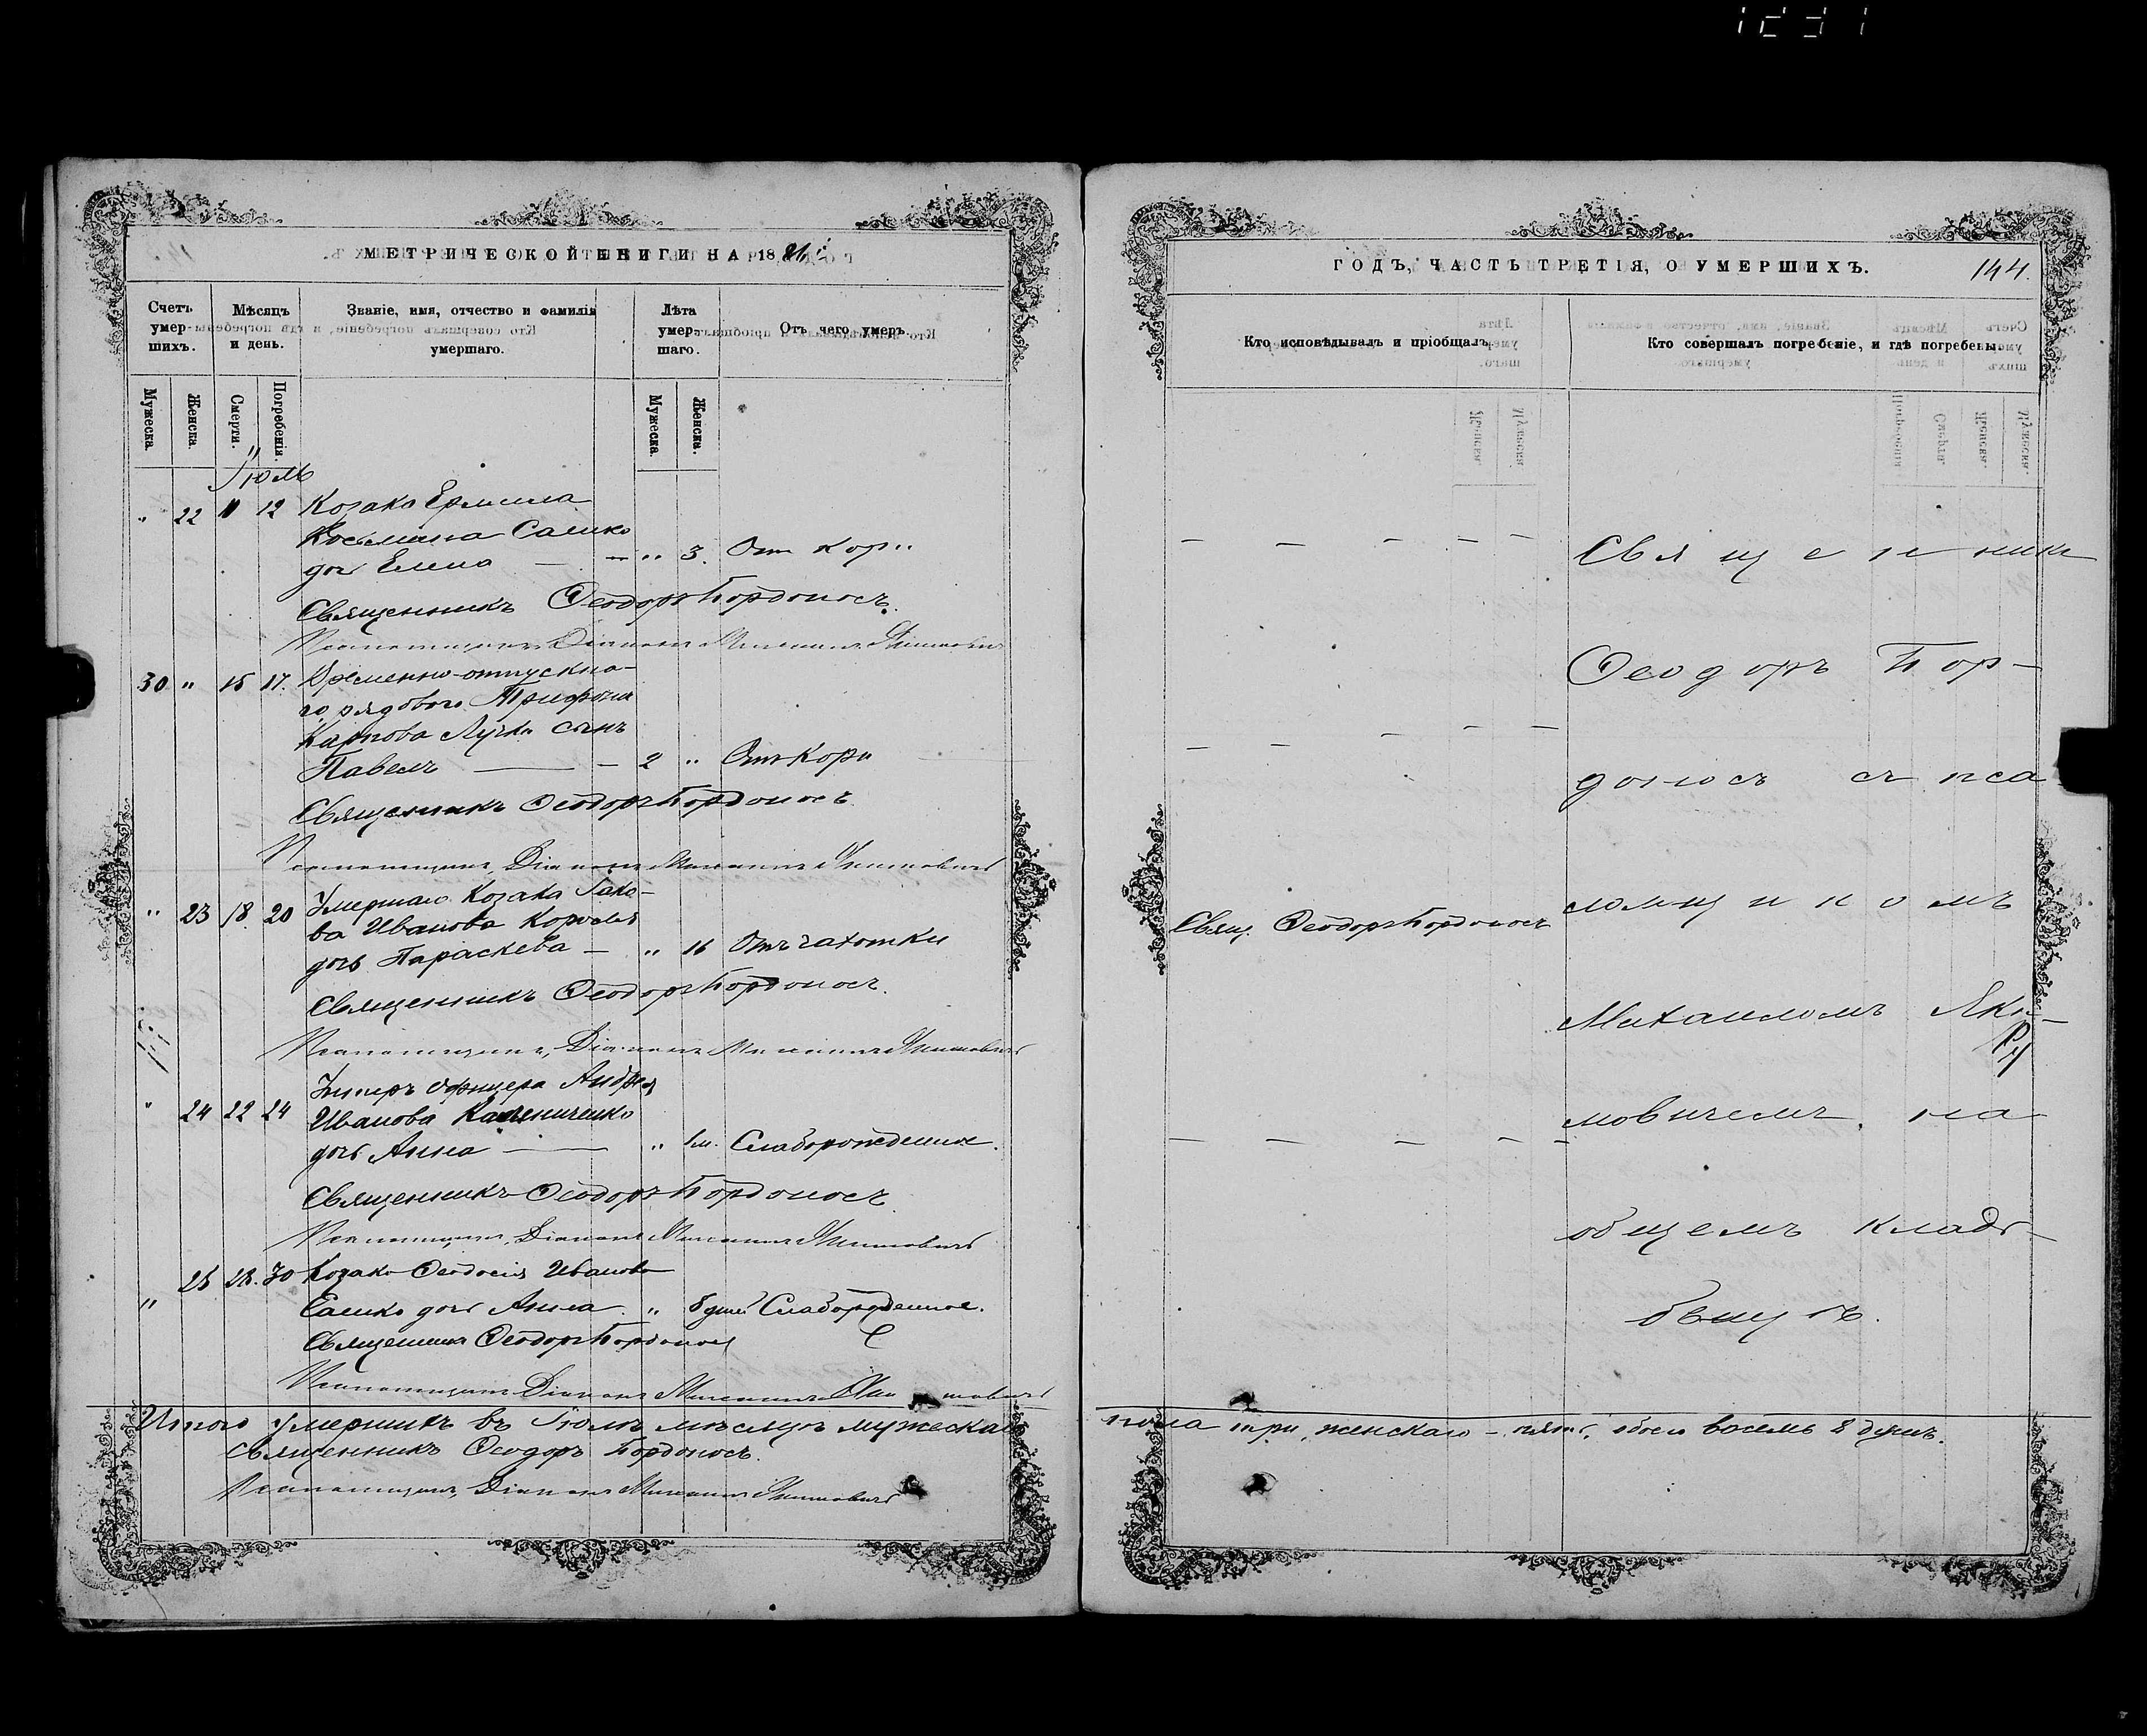 МЕТРИЧЕСКОЙ КНИГИ НА 18
Счетъ умер-шихъ.
Мѣсяцъ и день.
Званіе, имя, отчество и фамилія умершаго.
Лѣта умер-шаго.
Отъ чего умеръ.
Мужеска.
Женска.
Смерти.
Погребенія.
Мужеска.
Женска.
Іюль
" 22 11 12 Козака Ермила
Косьмина Сашко
дочь Елена — " 3. От кори
Священникъ Ѳеодоръ Бордоносъ.
Псаломщикъ, Діаконъ Михаилъ Якимовичъ
30 " 15 17. Временно-отпускна-
го рядового Трифона
Карпова Лучки сынъ
Павелъ — 2 " Отъ Кори
Священникъ Ѳеодоръ Бордоносъ
Псаломщикъ, Діаконъ Михаилъ Якимовичъ
" 23 18. 20 Умершаго Козака Іако-
ва Иванова Король
дочь Параскева — " 16 Отъ чахотки
Священникъ Ѳеодоръ Бордоносъ.
Псаломщикъ, Діаконъ Михаилъ Якимовичъ
" 24 22 24 Унтеръ офицера Андрея
Иванова Калениченко
дочь Анна — " 1м. Слаборожденная.
Священникъ Ѳеодоръ Бордоносъ.
Псаломщикъ, Діаконъ Михаилъ Якимовичъ
" 25 28. 30 Козака Ѳеодосія Иванова
Сашко дочь Анна " дней Слаборожденная.
Священникъ Ѳеодоръ Бордоносъ
Псаломщикъ Діаконъ Михаилъ Якимовичъ
Итого умершихъ въ Іюлѣ мѣсяцѣ мужеска
Священникъ Ѳеодоръ Бордоносъ.
Псаломщикъ, Діаконъ Михаилъ Якимовичъ
ГОДЪ, ЧАСТЬ ТРЕТІЯ, О УМЕРШИХЪ.
144.
Кто исповѣдывалъ и пріобщалъ.
Кто совершалъ погребеніе, и гдѣ погребены.
Священникъ
Ѳеодоръ Бор-
доносъ съ пса
Свящ. Ѳеодоръ Бордоносъ
ломщикомъ
Михаиломъ Яки-
мовичемъ, на
общемъ клад-
бищѣ.
пола три, женскаго — пять, обоего восемь 8 душъ.